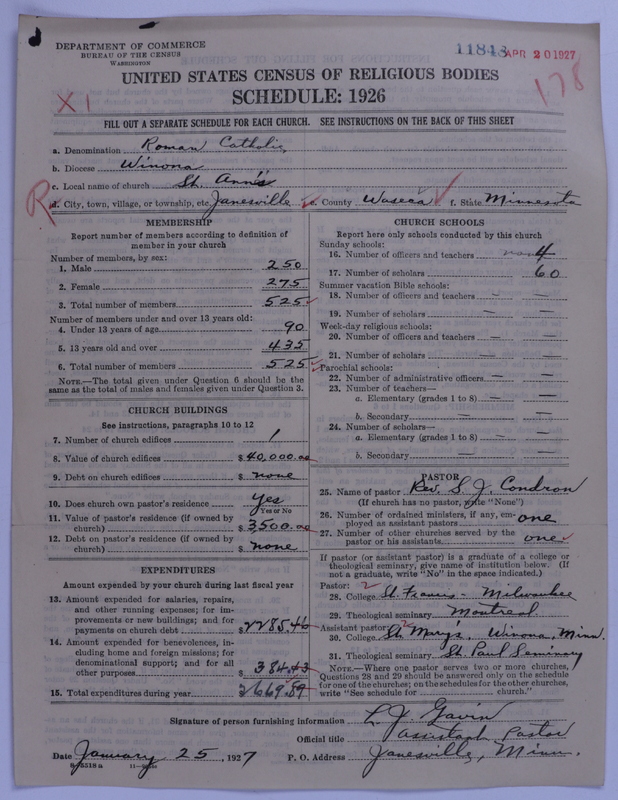 DEPARTMENT OF COMMERCE
BUREAU OF THE CENSUS
WASHINGTON
11848 APR 20 1927
178
X 1
UNITED STATES CENSUS OF RELIGIOUS BODIES
SCHEDULE: 1926
FILL OUT A SEPARATE SCHEDULE FOR EACH CHURCH. SEE INSTRUCTIONS ON THE BACK OF THIS SHEET
a. Denomination Roman Catholic
b. Diocese Winona
c. Local name of church St. Ann's
R
d. City, town, village, or township, etc. Janesville e. County Waseca f. State Minnesota
MEMBERSHIP
Report number of members according to definition of
member in your church
Number of members, by sex:
1. Male 250
2. Female 275
3. Total number of members 525
Number of members under and over 13 years old:
4. Under 13 years of age 90
5. 13 years old and over 435
6. Total number of members 525
NOTE.—The total given under Question 6 should be the
same as the total of males and females given under Question 3.
CHURCH BUILDINGS
See instructions, paragraphs 10 to 12
7. Number of church edifices 1
8. Value of church edifices $ 40,000.00
9. Debt on church edifices $ none
10. Does church own pastor's residence Yes
Yes or No
11. Value of pastor's residence (if owned by
church) $ 3500.00
12. Debt on pastor's residence (if owned by
church) $ none
EXPENDITURES
Amount expended by your church during last fiscal year
13. Amount expended for salaries, repairs,
and other running expenses; for im-
provements or new buildings; and for
payments on church debt $ 2285.46
14. Amount expended for benevolences, in-
cluding home and foreign missions; for
denominational support; and for all
other purposes $ 384.43
15. Total expenditures during year $ 2669.89
CHURCH SCHOOLS
Report here only schools conducted by this church
Sunday schools:
16. Number of officers and teachers 4
17. Number of scholars 60
Summer vacation Bible schools:
18. Number of officers and teachers — —
19. Number of scholars — —
Week-day religious schools:
20. Number of officers and teachers — —
21. Number of scholars — —
Parochial schools:
22. Number of administrative officers — —
23. Number of teachers—
a. Elementary (grades 1 to 8) — —
b. Secondary — —
24. Number of scholars—
a. Elementary (grades 1 to 8) — —
b. Secondary — —
PASTOR
25. Name of pastor Rev. S. J. Condron
(If church has no pastor, write "None")
26. Number of ordained ministers, if any, em-
ployed as assistant pastors one
27. Number of other churches served by the
pastor or his assistants one
If pastor (or assistant pastor) is a graduate of a college or
theological seminary, give name of institution below. (If
not a graduate, write "No" in the space indicated.)
Pastor: 2
28. College St. Francis - Milwaukee
29. Theological seminary Montreal
Assistant pastor: 2
30. College St. Mary's, Winona, Minn.
31. Theological seminary St. Paul Seminary
NOTE.—Where one pastor serves two or more churches,
Questions 28 and 29 should be answered only on the schedule
for one of the churches; on the schedules for the other churches,
write "See schedule for church."
Signature of person furnishing information L. J. Gavin
Official title assistant Pastor
Date January 25, 1927 P. O. Address Janesville, Minn.